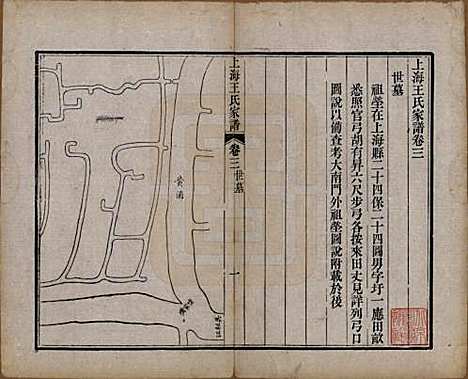 上海王氏家譜卷三
世墓
祖塋在上海縣二十四保二十四圖男字圩一應田畝
悉照官弓胡有昇六尺步弓各按來田丈見詳列弓口
圖說以備查考大南門外祖塋圖說附載於後
上海王氏家譜
卷三 世墓
一
黃浦